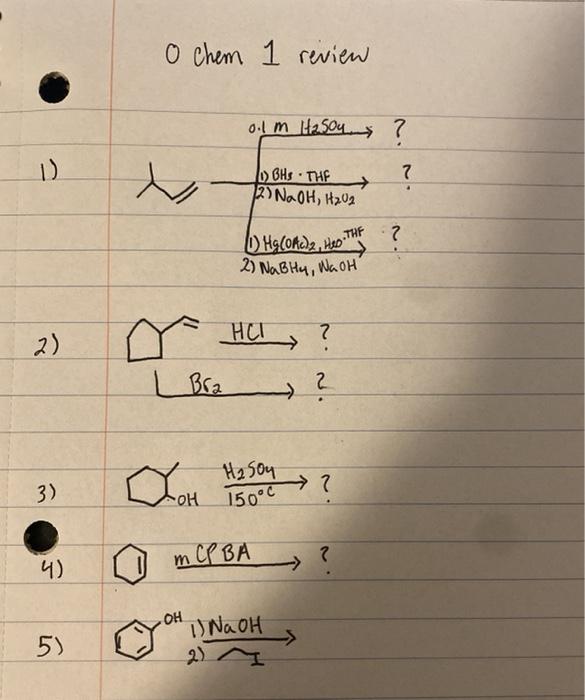 O Chem 1 review
0.1 m H2SO4 ?
1)
1) BH3 · THF ?
2) NaOH, H2O2
1) Hg(OAc)2, H2O·THF ?
2) NaBH4, NaOH
2) HCl ?
Br2 ?
3) OH H2SO4 ?
150°C
4) mCPBA ?
5) OH 1) NaOH
2) I